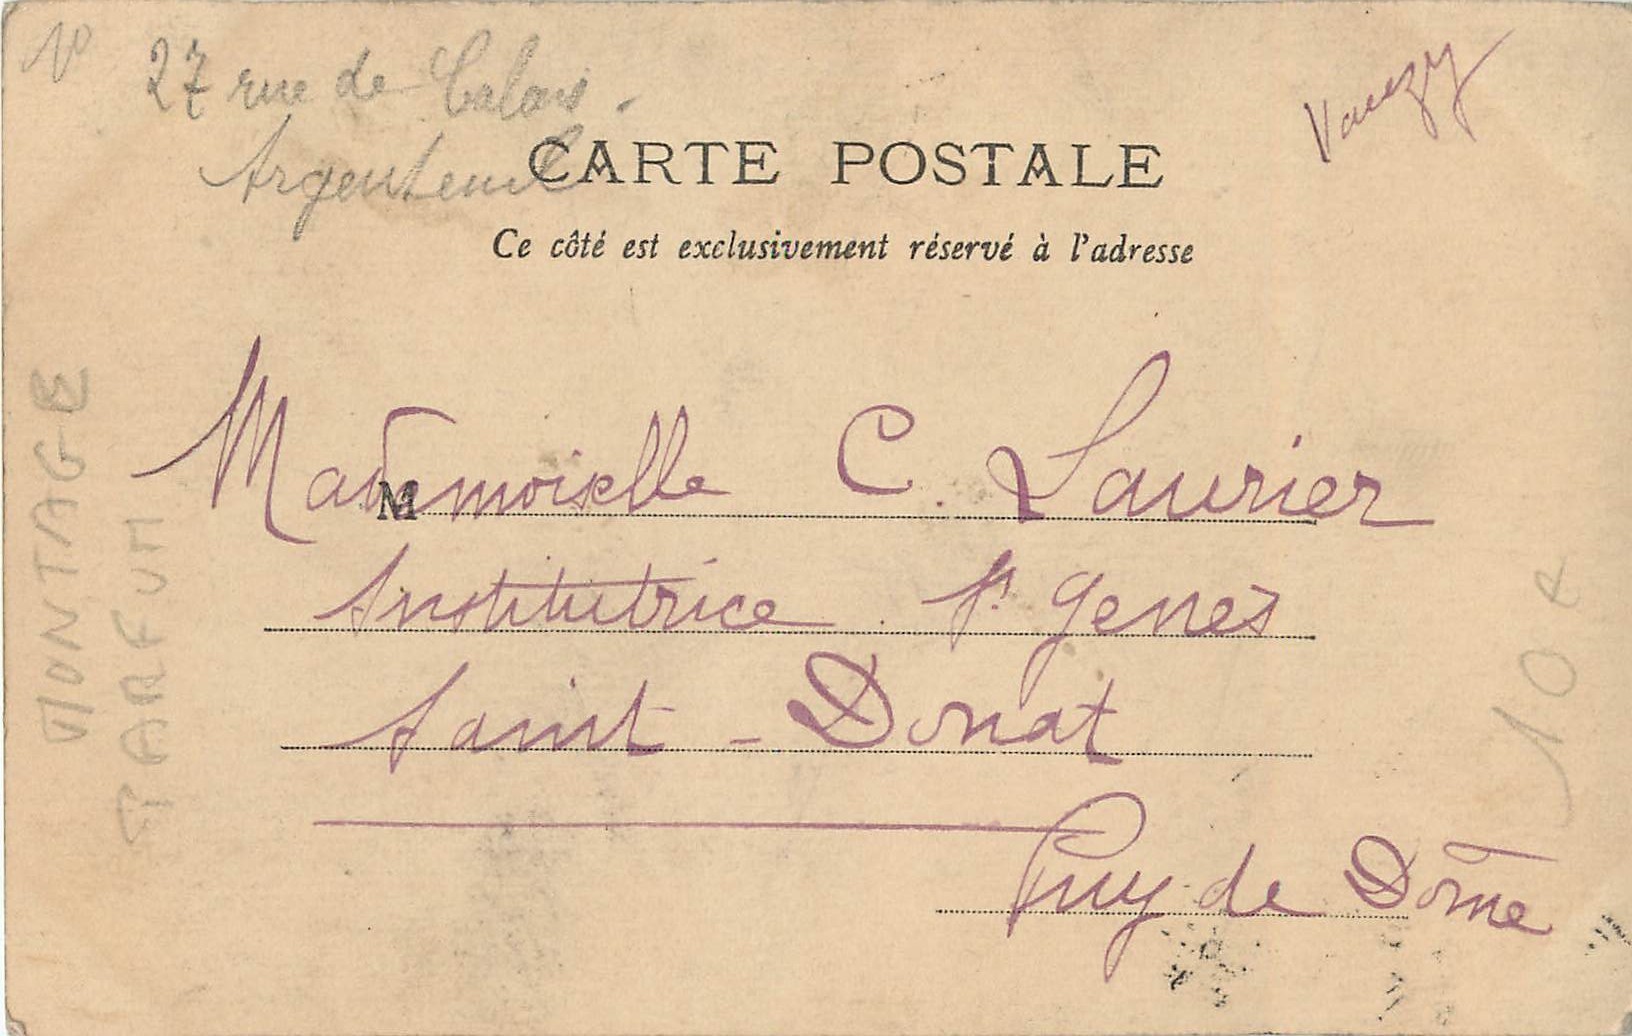 27 rue de Calais.
Argenteuil
CARTE POSTALE
Ce côté est exclusivement réservé à l'adresse
M
Mademoiselle C. Laurier
Institutrice St Genes
Saint-Donat
Puy de Dôme
MONTAGE
PARFUM
10 €